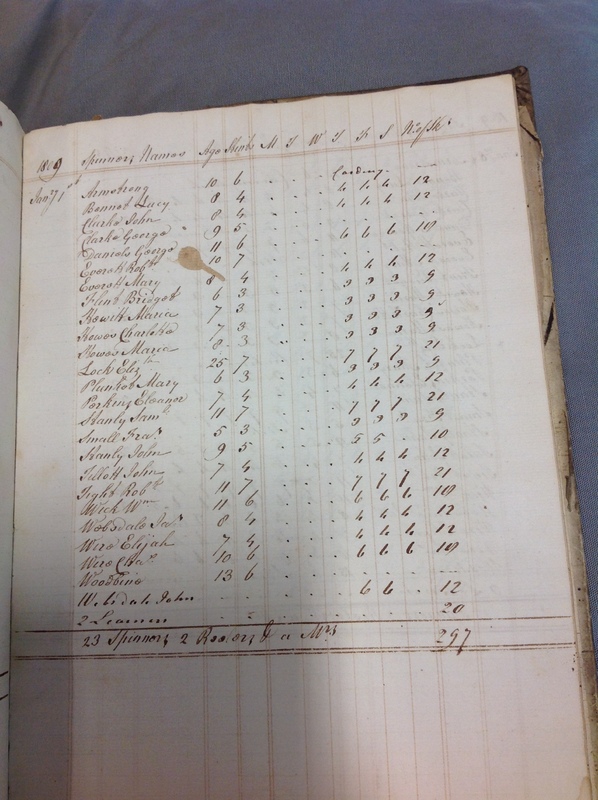 1809 Spinners Names Age Skeins M T W T F S No of Sks
Jany 1st Armstrong 10 6 Carding —
Bennet Lucy 8 4 4 4 4 12
Clarke John 8 4 4 4 4 12
Clarke George 9 5
Daniels George 11 6 6 6 6 18
Everett Robt 10 7 —
Everett Mary 8 4 4 4 4 12
Flint Bridget 6 3 3 3 3 9
Howitt Maria 7 3 3 3 3 9
Howes Charlotte 7 3 3 3 3 9
Howes Maria 8 3 3 3 3 9
Lock Elizth 25 7 7 7 7 21
Plunket Mary 6 3 3 3 3 9
Perkins Eleanor 7 4 4 4 4 12
Stanly Saml 11 7 7 7 7 21
Small Fras 5 3 3 3 3 9
Stanly John 9 5 5 5 10
Tillott John 7 4 4 4 4 12
Tight Robt 11 7 7 7 7 21
Wick Wm 11 6 6 6 6 18
Websdale Jas 8 4 4 4 4 12
Were Elijah 7 4 4 4 4 12
Were Chas 10 6 6 6 6 18
Woodbine 13 6 —
Websdale John 6 6 12
2 Learners 20
23 Spinners 2 & a Mrs 297